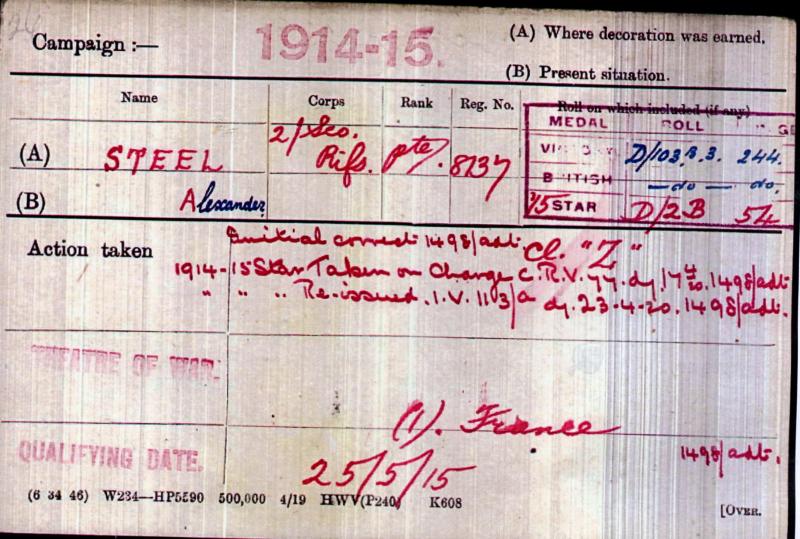 Campaign :— 1914-15. (A) Where decoration was earned.
(B) Present situation.
Name Corps Rank Reg. No. Roll on which included (if any)
MEDAL ROLL GE
(A) STEEL 2/Sco. Rifs. Pte. 8737 VICTORY D/103.B.3. 244.
(B) Alexander BRITISH — do — do.
15 STAR D/2B 54
Action taken Initial correct 1498/adt. Cl. "Z"
1914-15 Star Taken on Charge C.R.V. 44. d/ 17.4.20. 1498/adt.
" " " Re-issued. I.V. 1103/a d/. 23-4-20. 1498/adt.
THEATRE OF WAR.
(1). France
QUALIFYING DATE. 25/5/15 1498/adt.
(6 34 46) W234—HP5590 500,000 4/19 HWV(P240) K608
[OVER.